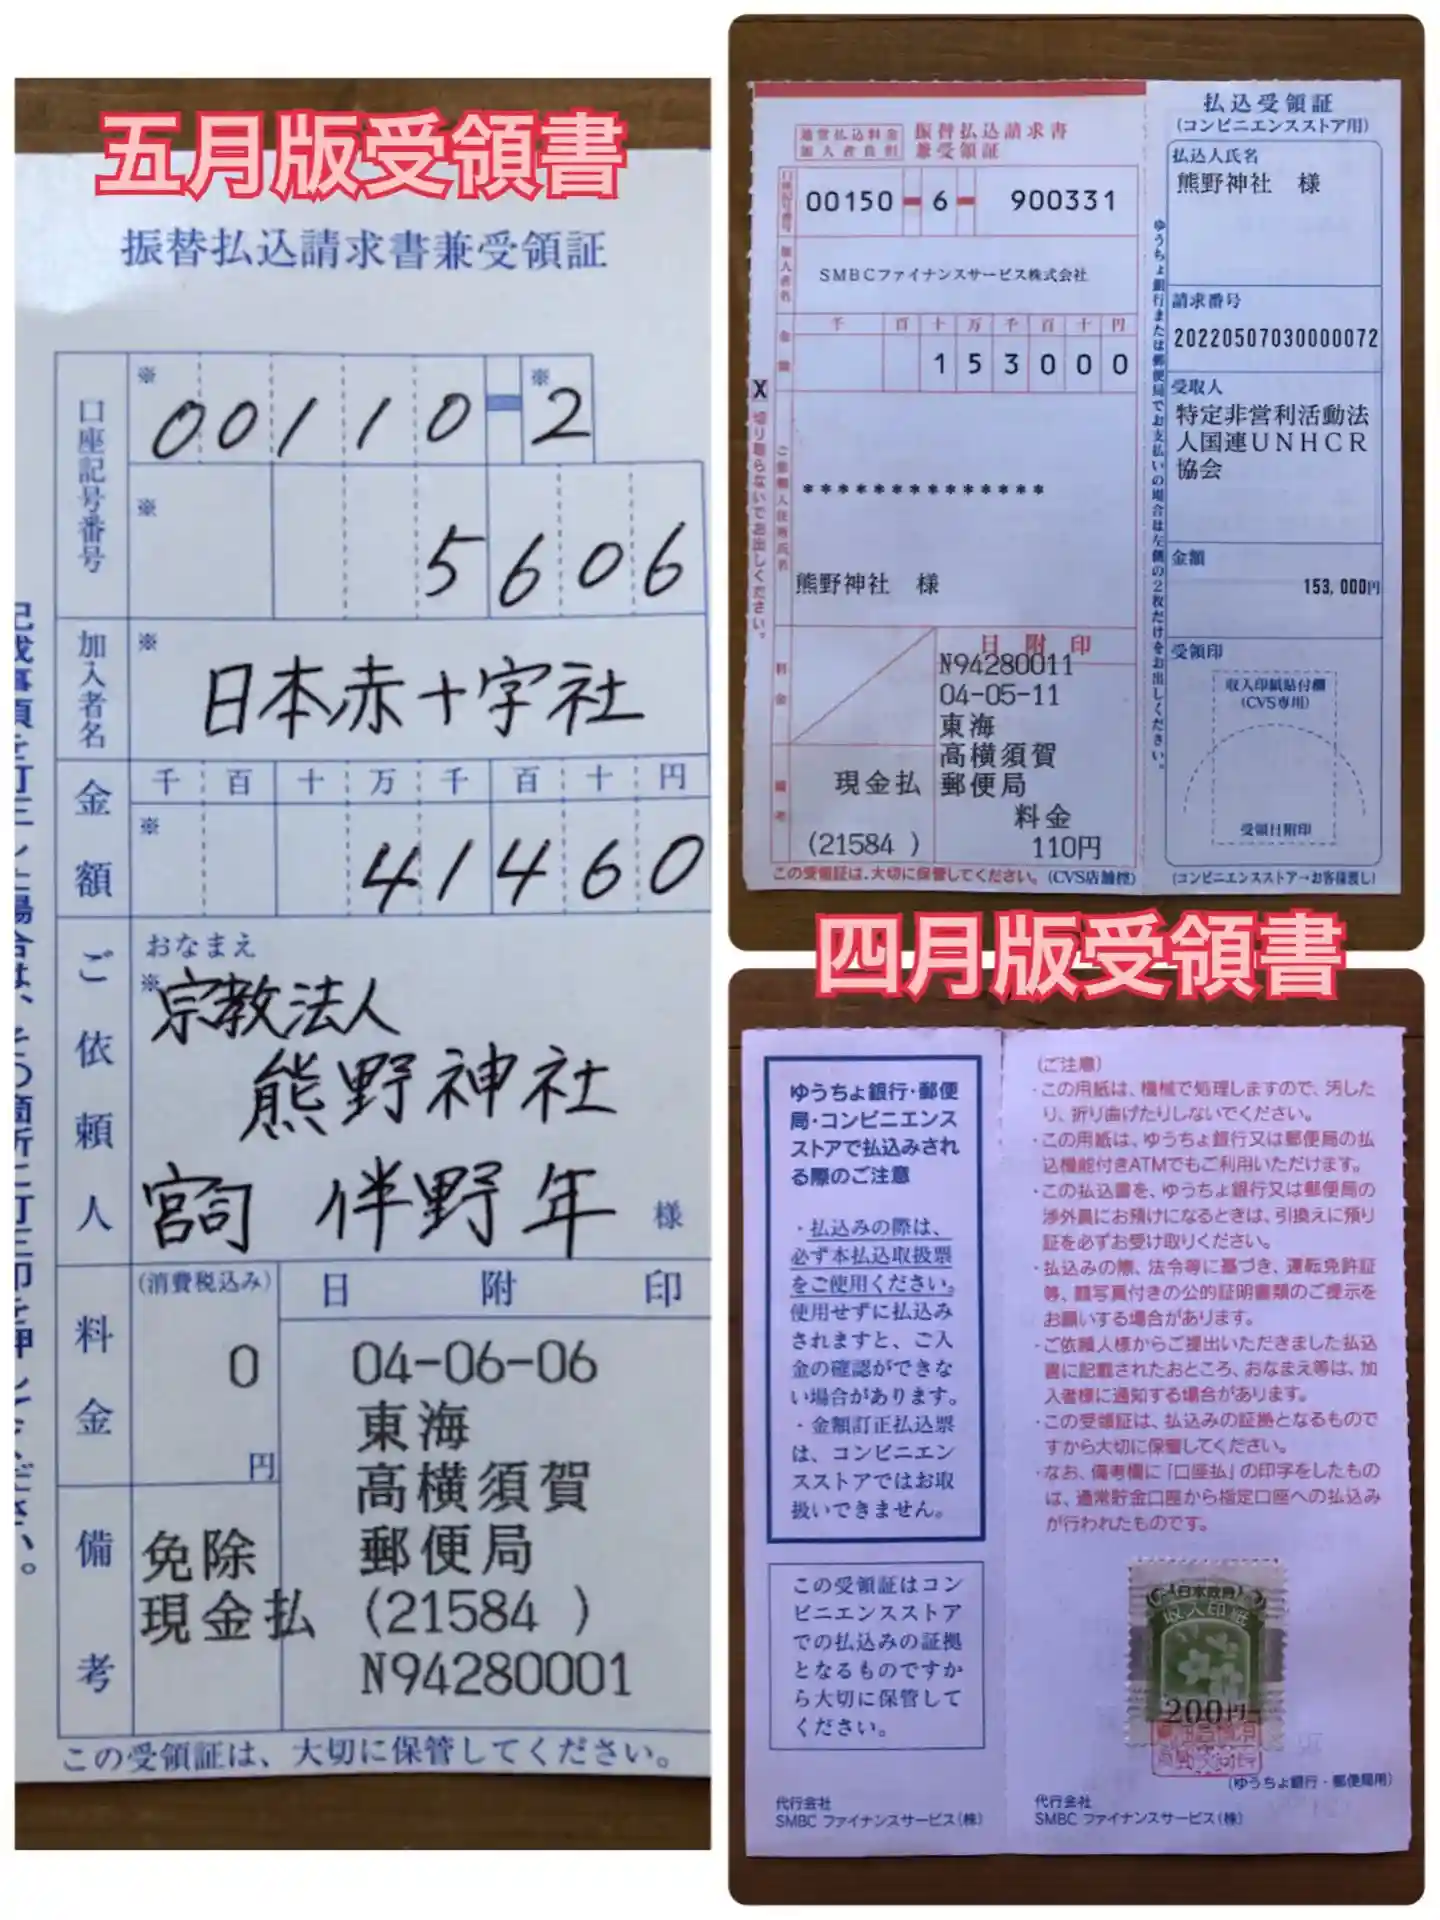 五月版受領書
振替払込請求書兼受領証
口座記号番号
※ 00110-※2
※ 5606
加入者名
※ 日本赤十字社
金額
千 百 十 万 千 百 十 円
※ 41460
ご依頼人
おなまえ
※ 宗教法人
熊野神社
宮司 伴野年 様
料金
(消費税込み)
0
円
日附印
04-06-06
東海
高横須賀
郵便局
(21584 )
N94280001
備考
免除
現金払
この受領証は、大切に保管してください。
通常払込料金
加入者負担
振替払込請求書
兼受領証
口座記号番号
00150-6-900331
加入者名
SMBCファイナンスサービス株式会社
金額
千 百 十 万 千 百 十 円
153000
ご依頼人住所氏名
**************
熊野神社 様
料金
日附印
N94280011
04-05-11
東海
高横須賀
郵便局
料金
110円
備考
現金払
(21584 )
この受領証は、大切に保管してください。(CVS店舗控)
X 切り取らないでお出しください。
ゆうちょ銀行または郵便局でお支払いの場合は左側の2枚だけをお出しください。
払込受領証
(コンビニエンスストア用)
払込人氏名
熊野神社 様
請求番号
20220507030000072
受取人
特定非営利活動法
人国連UNHCR
協会
金額
153,000円
受領印
収入印紙貼付欄
(CVS専用)
受領日附印
(コンビニエンスストア→お客様渡し)
四月版受領書
ゆうちょ銀行・郵便
局・コンビニエンス
ストアで払込みされ
る際のご注意
・払込みの際は、
必ず本払込取扱票
をご使用ください。
使用せずに払込み
されますと、ご入
金の確認ができな
い場合があります。
・金額訂正払込票
は、コンビニエン
スストアではお取
扱いできません。
この受領証はコン
ビニエンスストア
での払込みの証拠
となるものですか
ら大切に保管して
ください。
代行会社
SMBC ファイナンスサービス(株)
(ご注意)
・この用紙は、機械で処理しますので、汚した
り、折り曲げたりしないでください。
・この用紙は、ゆうちょ銀行又は郵便局の払
込機能付きATMでもご利用いただけます。
・この払込書を、ゆうちょ銀行又は郵便局の
渉外員にお預けになるときは、引換えに預り
証を必ずお受け取りください。
・払込みの際、法令等に基づき、運転免許証
等、顔写真付きの公的証明書類のご提示を
お願いする場合があります。
・ご依頼人様からご提出いただきました払込
書に記載されたおところ、おなまえ等は、加
入者様に通知する場合があります。
・この受領証は、払込みの証拠となるもので
すから大切に保管してください。
・なお、備考欄に「口座払」の印字をしたもの
は、通常貯金口座から指定口座への払込み
が行われたものです。
日本政府
収入印紙
200円
(ゆうちょ銀行・郵便局用)
代行会社
SMBC ファイナンスサービス(株)